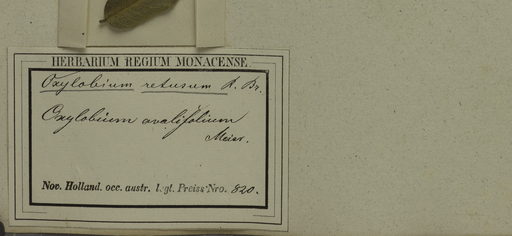 HERBARIUM REGIUM MONACENSE.
Oxylobium retusum R. Br.
Oxylobium ovalifolium
Meisr.
Nov. Holland. occ. austr. legt. Preiss Nro. 820.